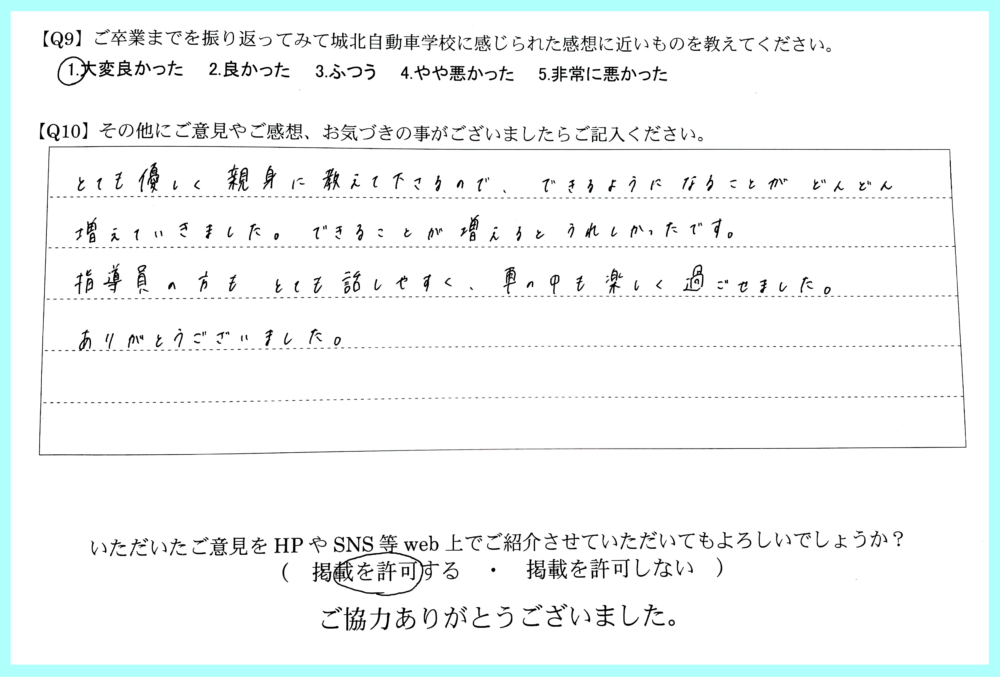 【Q9】ご卒業までを振り返ってみて城北自動車学校に感じられた感想に近いものを教えてください。
1.大変良かった 2.良かった 3.ふつう 4.やや悪かった 5.非常に悪かった
【Q10】その他にご意見やご感想、お気づきの事がございましたらご記入ください。
とても優しく親身に教えて下さるので、できるようになることがどんどん
増えていきました。できることが増えるとうれしかったです。
指導員の方もとても話しやすく、車の中も楽しく過ごせました。
ありがとうございました。
いただいたご意見をHPやSNS等web上でご紹介させていただいてもよろしいでしょうか？
（ 掲載を許可する ・ 掲載を許可しない ）
ご協力ありがとうございました。